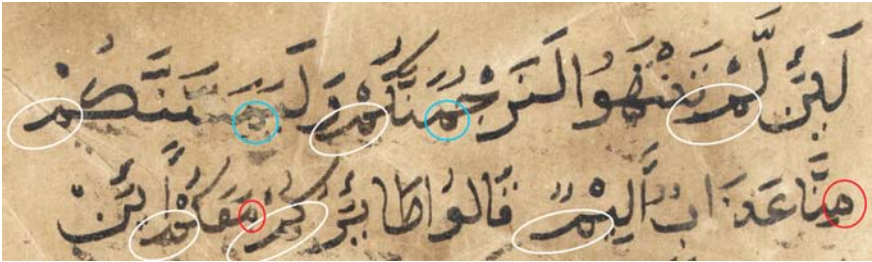 لَئِن لَّمْ تَنْتَهُوا لَنَرْجُمَنَّكُمْ وَلَيَمَسَّنَّكُمْ
مِنَّا عَذَابٌ أَلِيْمٌ قَالُوا طَائِرُكُمْ مَعَكُمْ أَئِنْ